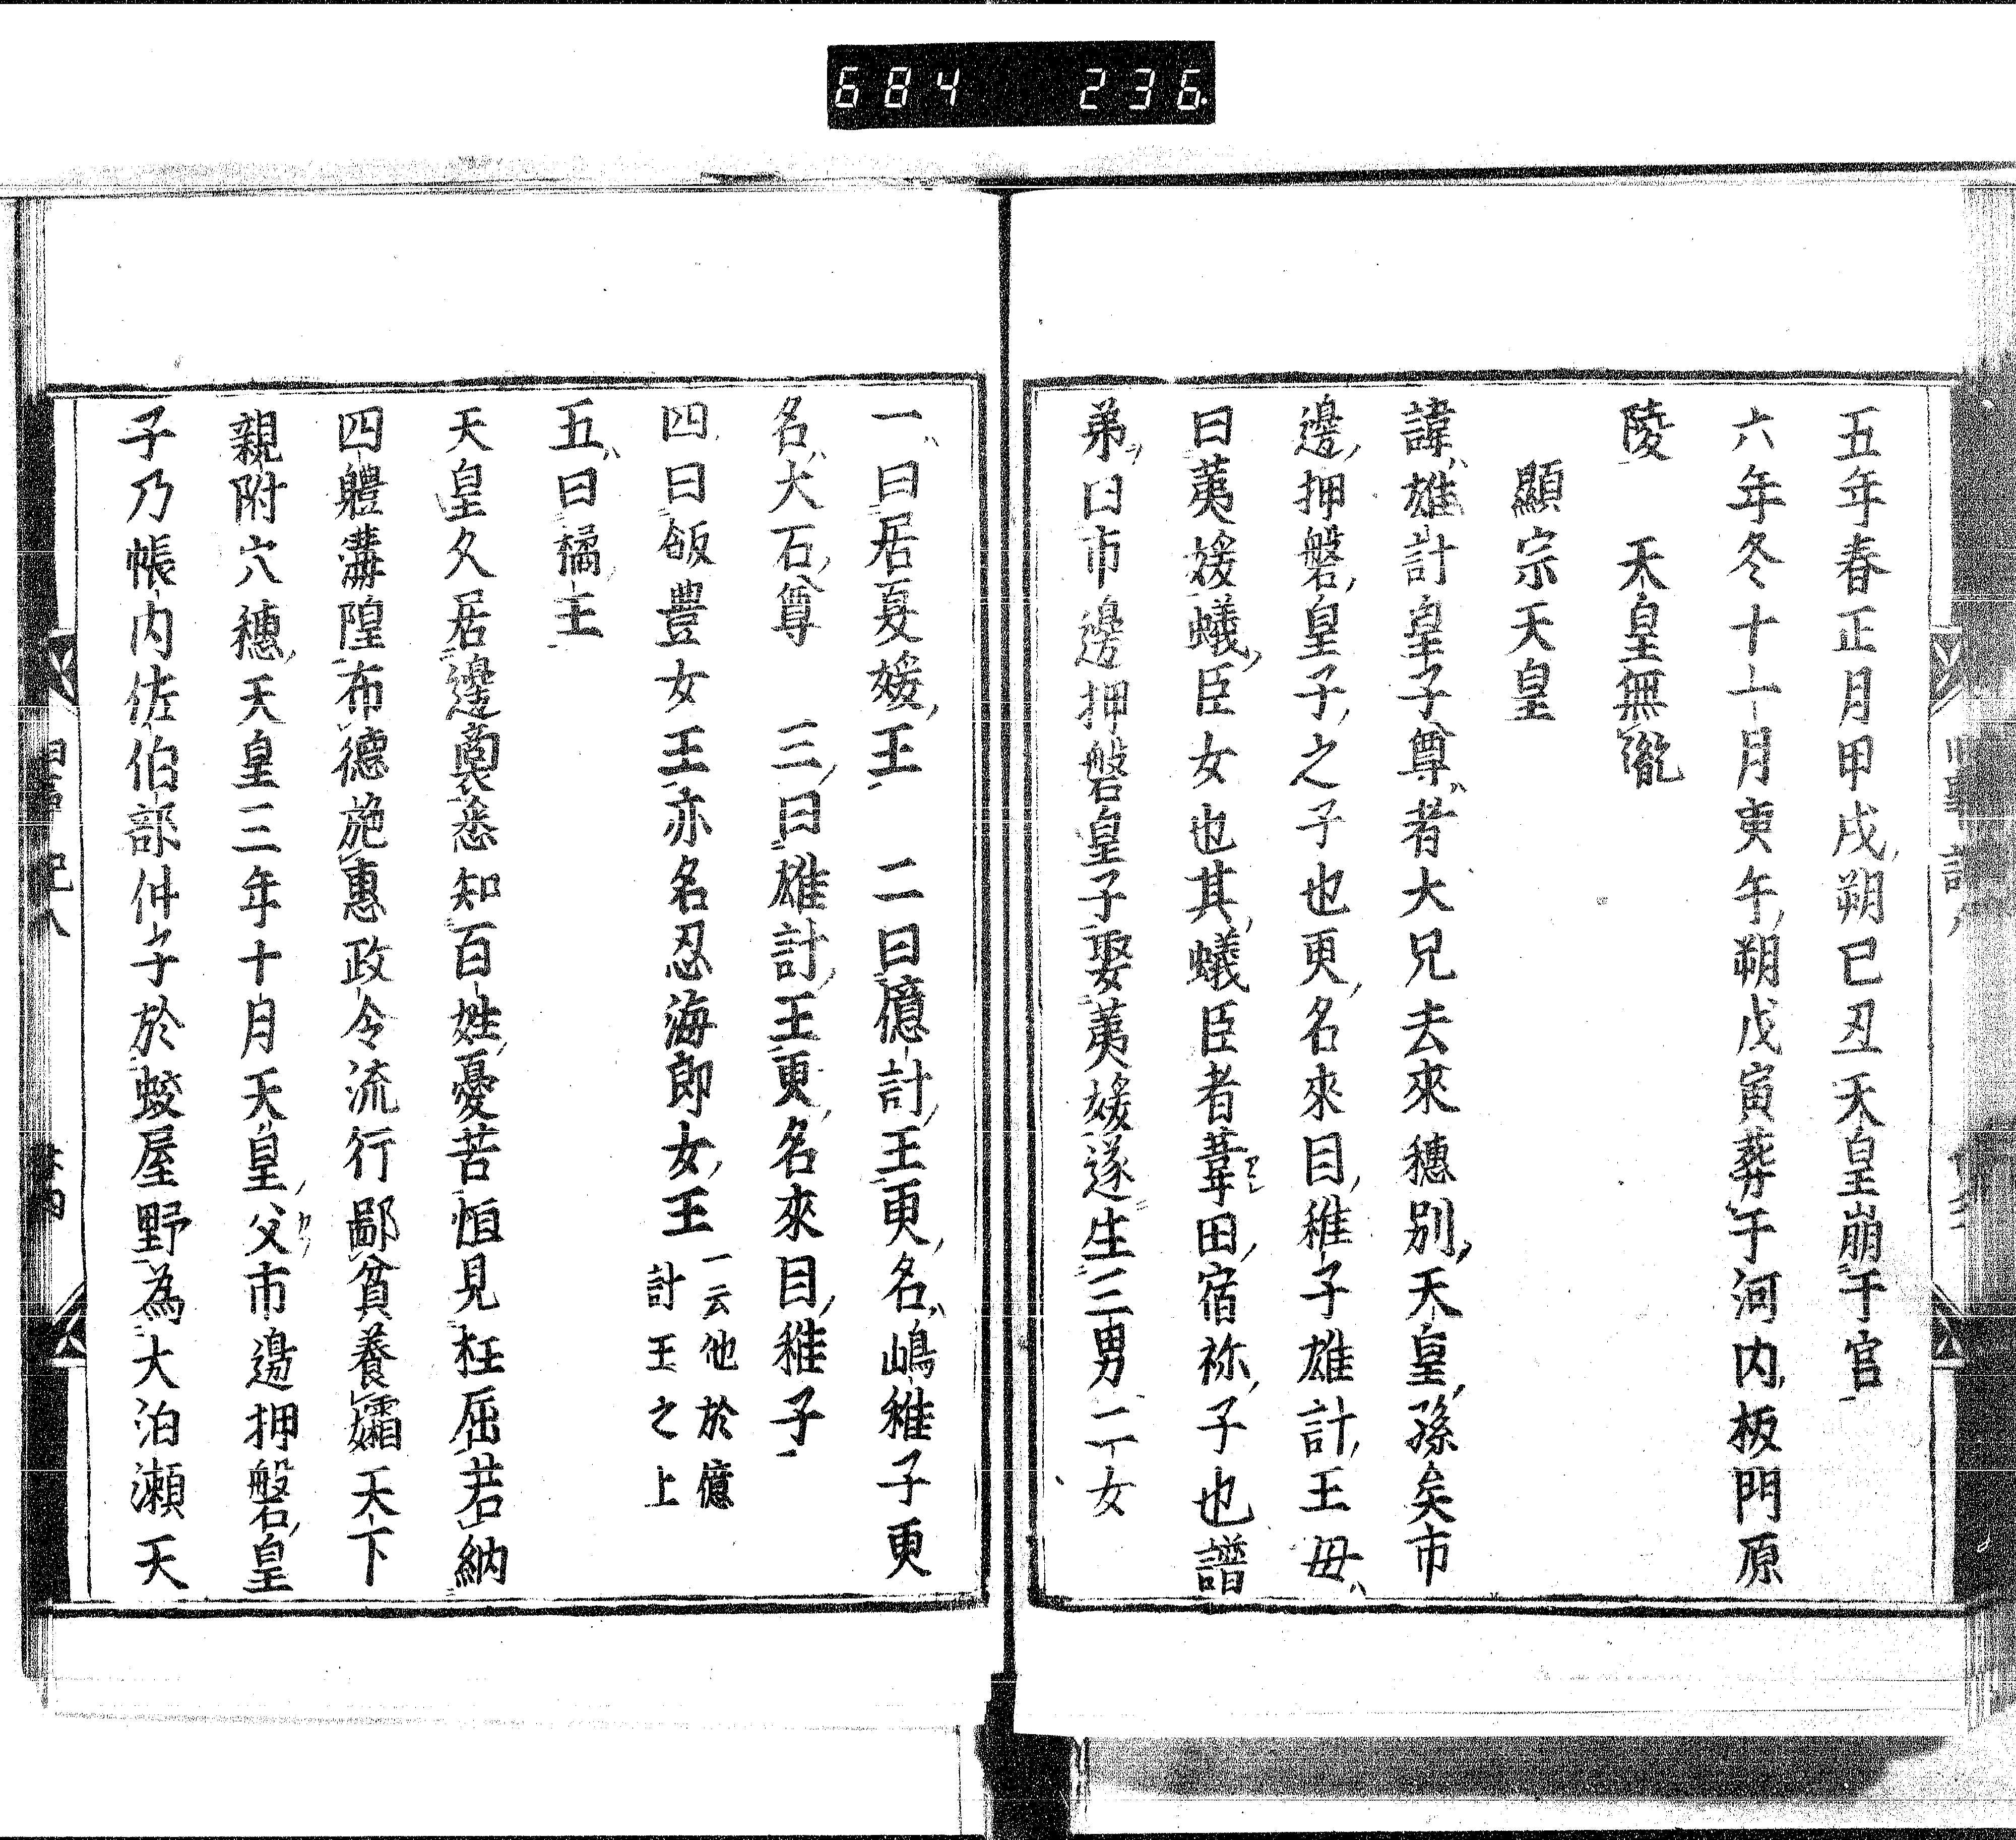 684 236
五年春正月甲戌朔巳丑天皇崩于宮
六年冬十一月庚午朔戊寅葬于河内板門原
陵　天皇無胤
顯宗天皇
諱雄計皇子尊者大兄去來穗別天皇孫矣市
邊押磐皇子之子也更名來目稚子雄計王母
曰荑媛蟻臣女也其蟻臣者葦田宿祢子也譜
弟曰市邊押磐皇子娶荑媛遂生三男二女
一曰居夏媛王　二曰億計王更名嶋稚子更
名大石尊　三曰雄計王更名來目稚子
四曰飯豐女王亦名忍海郎女王 一云他於億
計王之上
五曰橘王
天皇久居邊裔悉知百姓憂苦恒見枉屈若納
四軆溝隍布德施惠政令流行鄙貧養孀天下
親附穴穗天皇三年十月天皇父市邊押磐皇
子乃帳内佐伯部仲子於蛟屋野為大泊瀬天